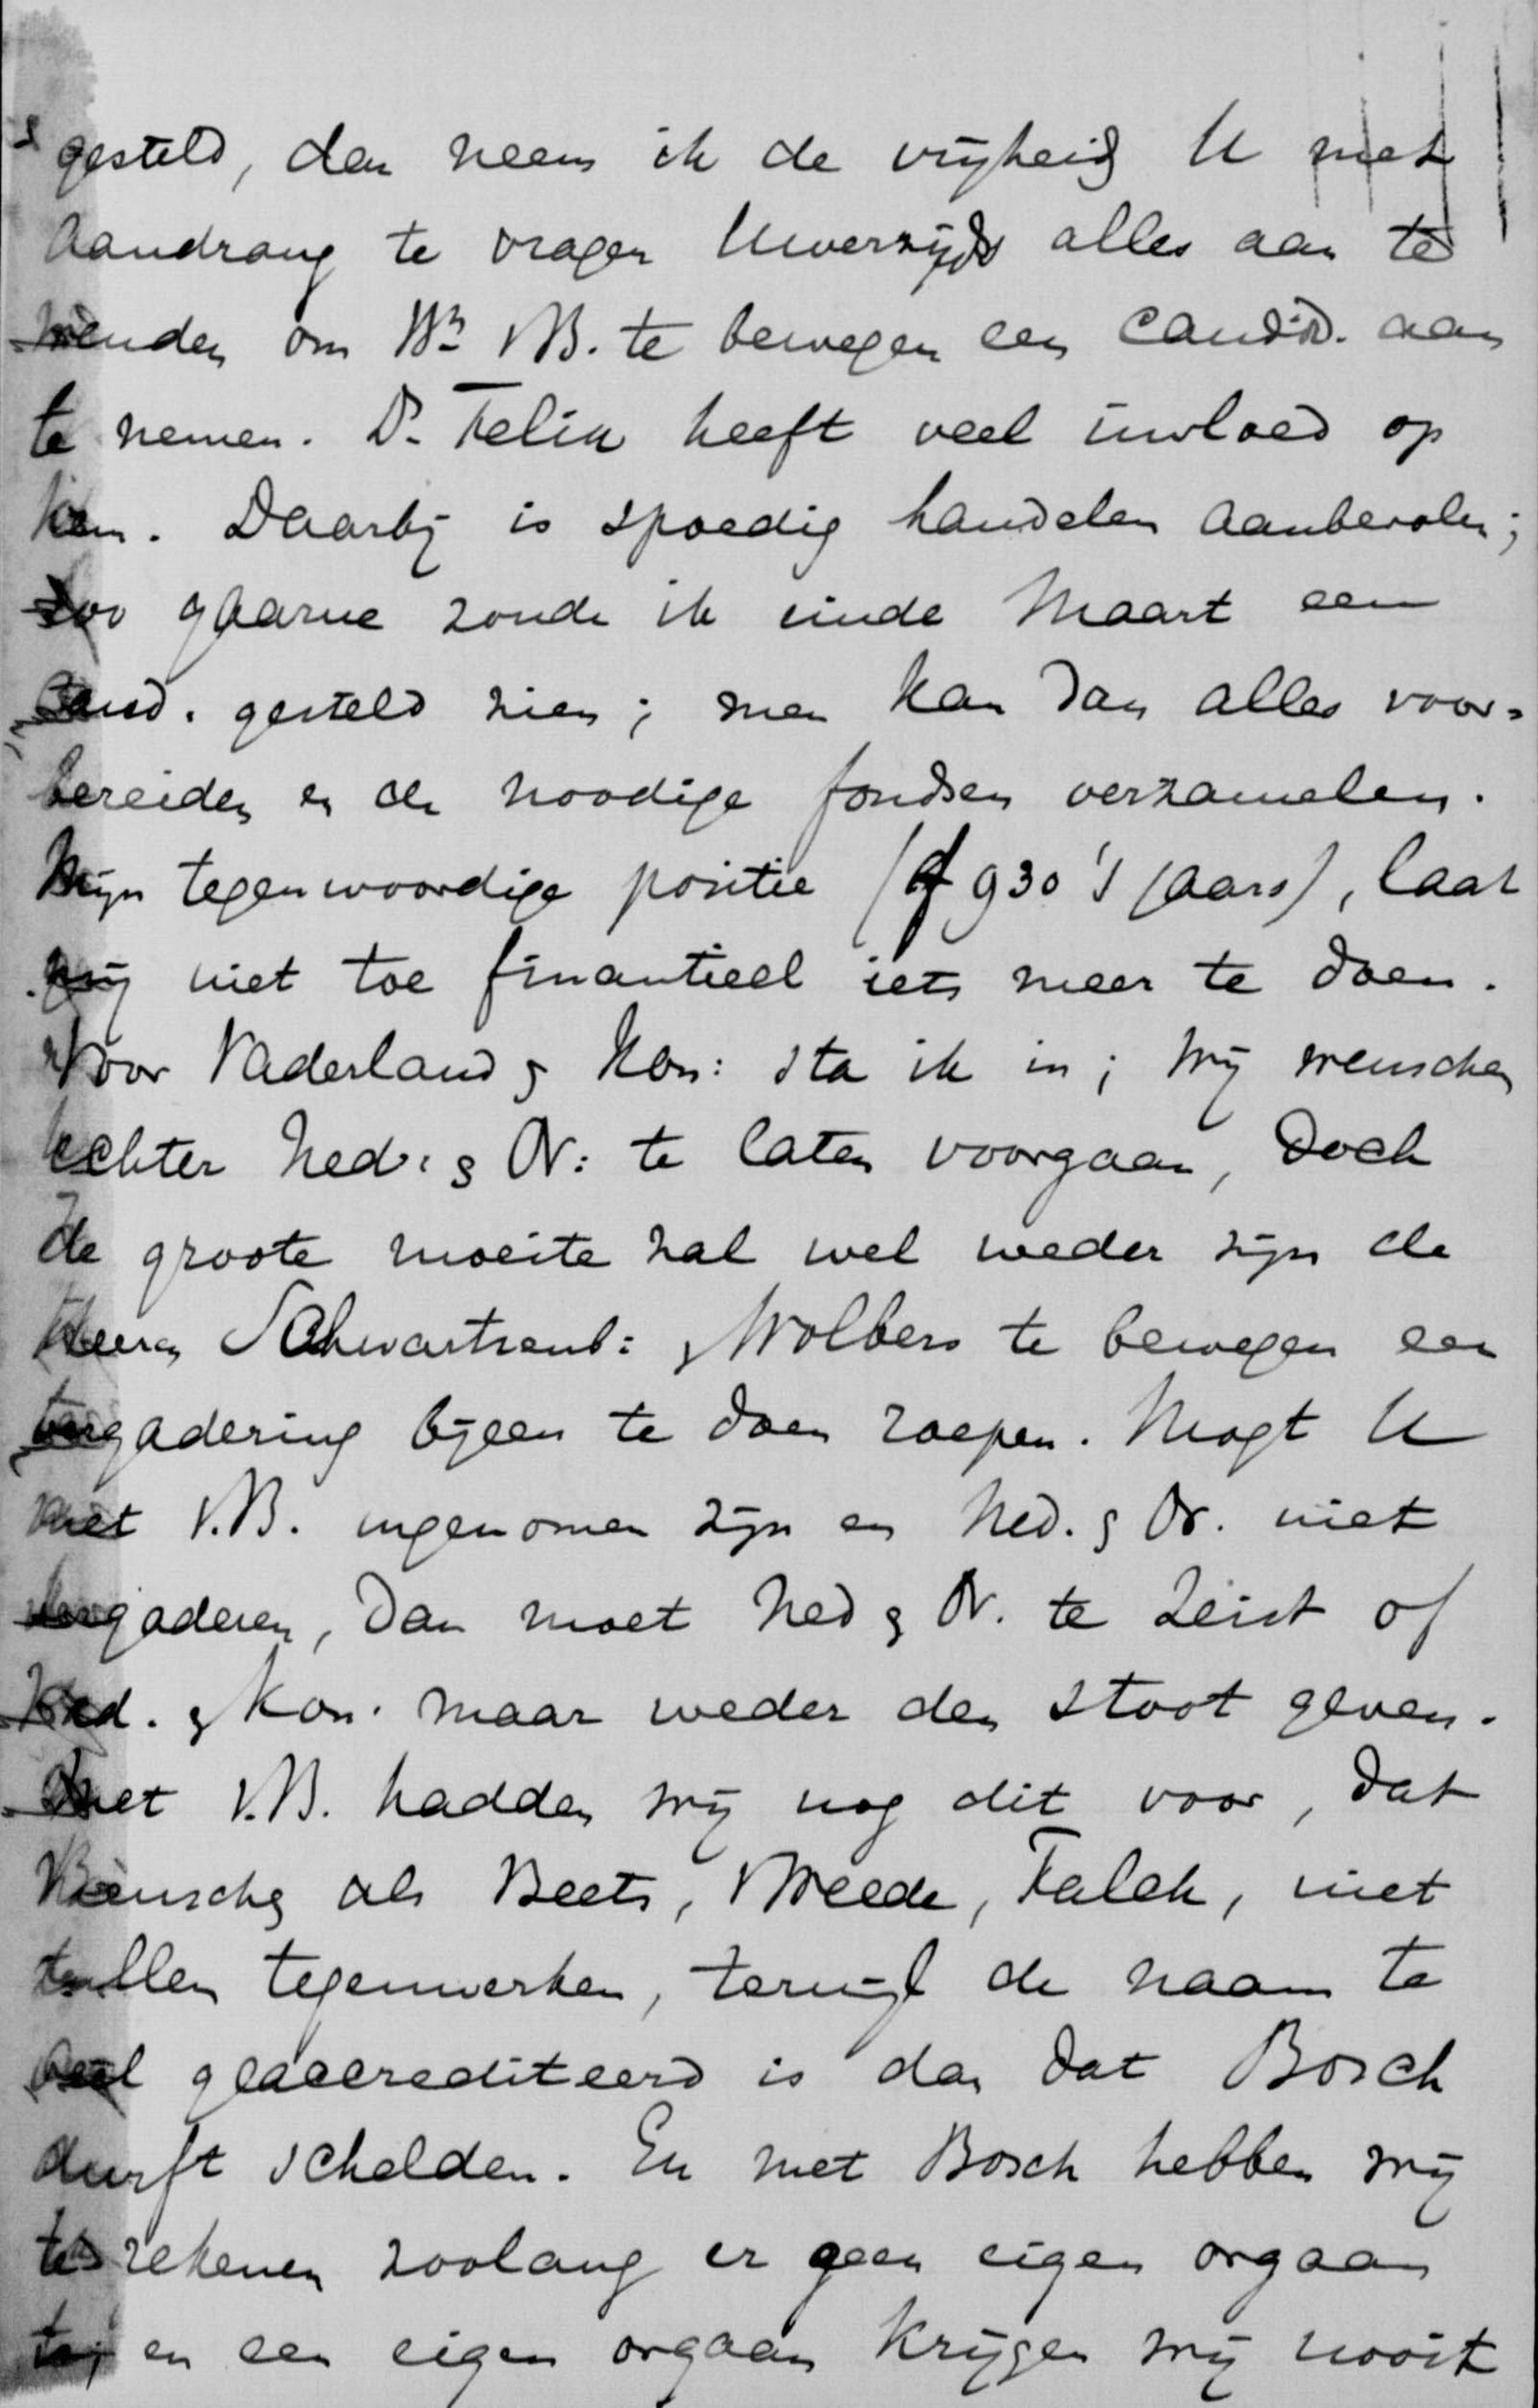 gesteld, dan neem ik de vrijheid U met
aandrang te vragen Uwerzijds alles aan te
wenden om Wm v B. te bewegen een candid. aan
te nemen. Dr. Felix heeft veel invloed op
hem. Daarbij is spoedig handelen aanbevolen;
zoo gaarne zoude ik einde Maart een
cand. gesteld zien; men kan dan alles voor-
bereiden en de noodige fondsen verzamelen.
Mijn tegenwoordige positie (f 930 's jaars), laat
mij niet toe finantieel iets meer te doen.
Voor Vaderland & Kon: sta ik in; wij wenschen
echter Ned: & Or: te laten voorgaan, doch
de groote moeite zal wel weder zijn de
Heeren Schwartzenb: & Wolbers te bewegen een
vergadering bijeen te doen roepen. Mogt U
met v.B. ingenomen zijn en Ned. & Or. niet
vergaderen, dan moet Ned & Or. te Zeist of
Vad. & Kon. maar weder den stoot geven.
Met v.B. hadden wij nog dit voor, dat
Menschen als Beets, Vreede, Falck, niet
zullen tegenwerken, terwijl de naam te
veel geaccrediteerd is dan dat Bosch
durft schelden. En met Bosch hebben wij
te rekenen zoolang er geen eigen orgaan
is; en een eigen orgaan krijgen wij nooit